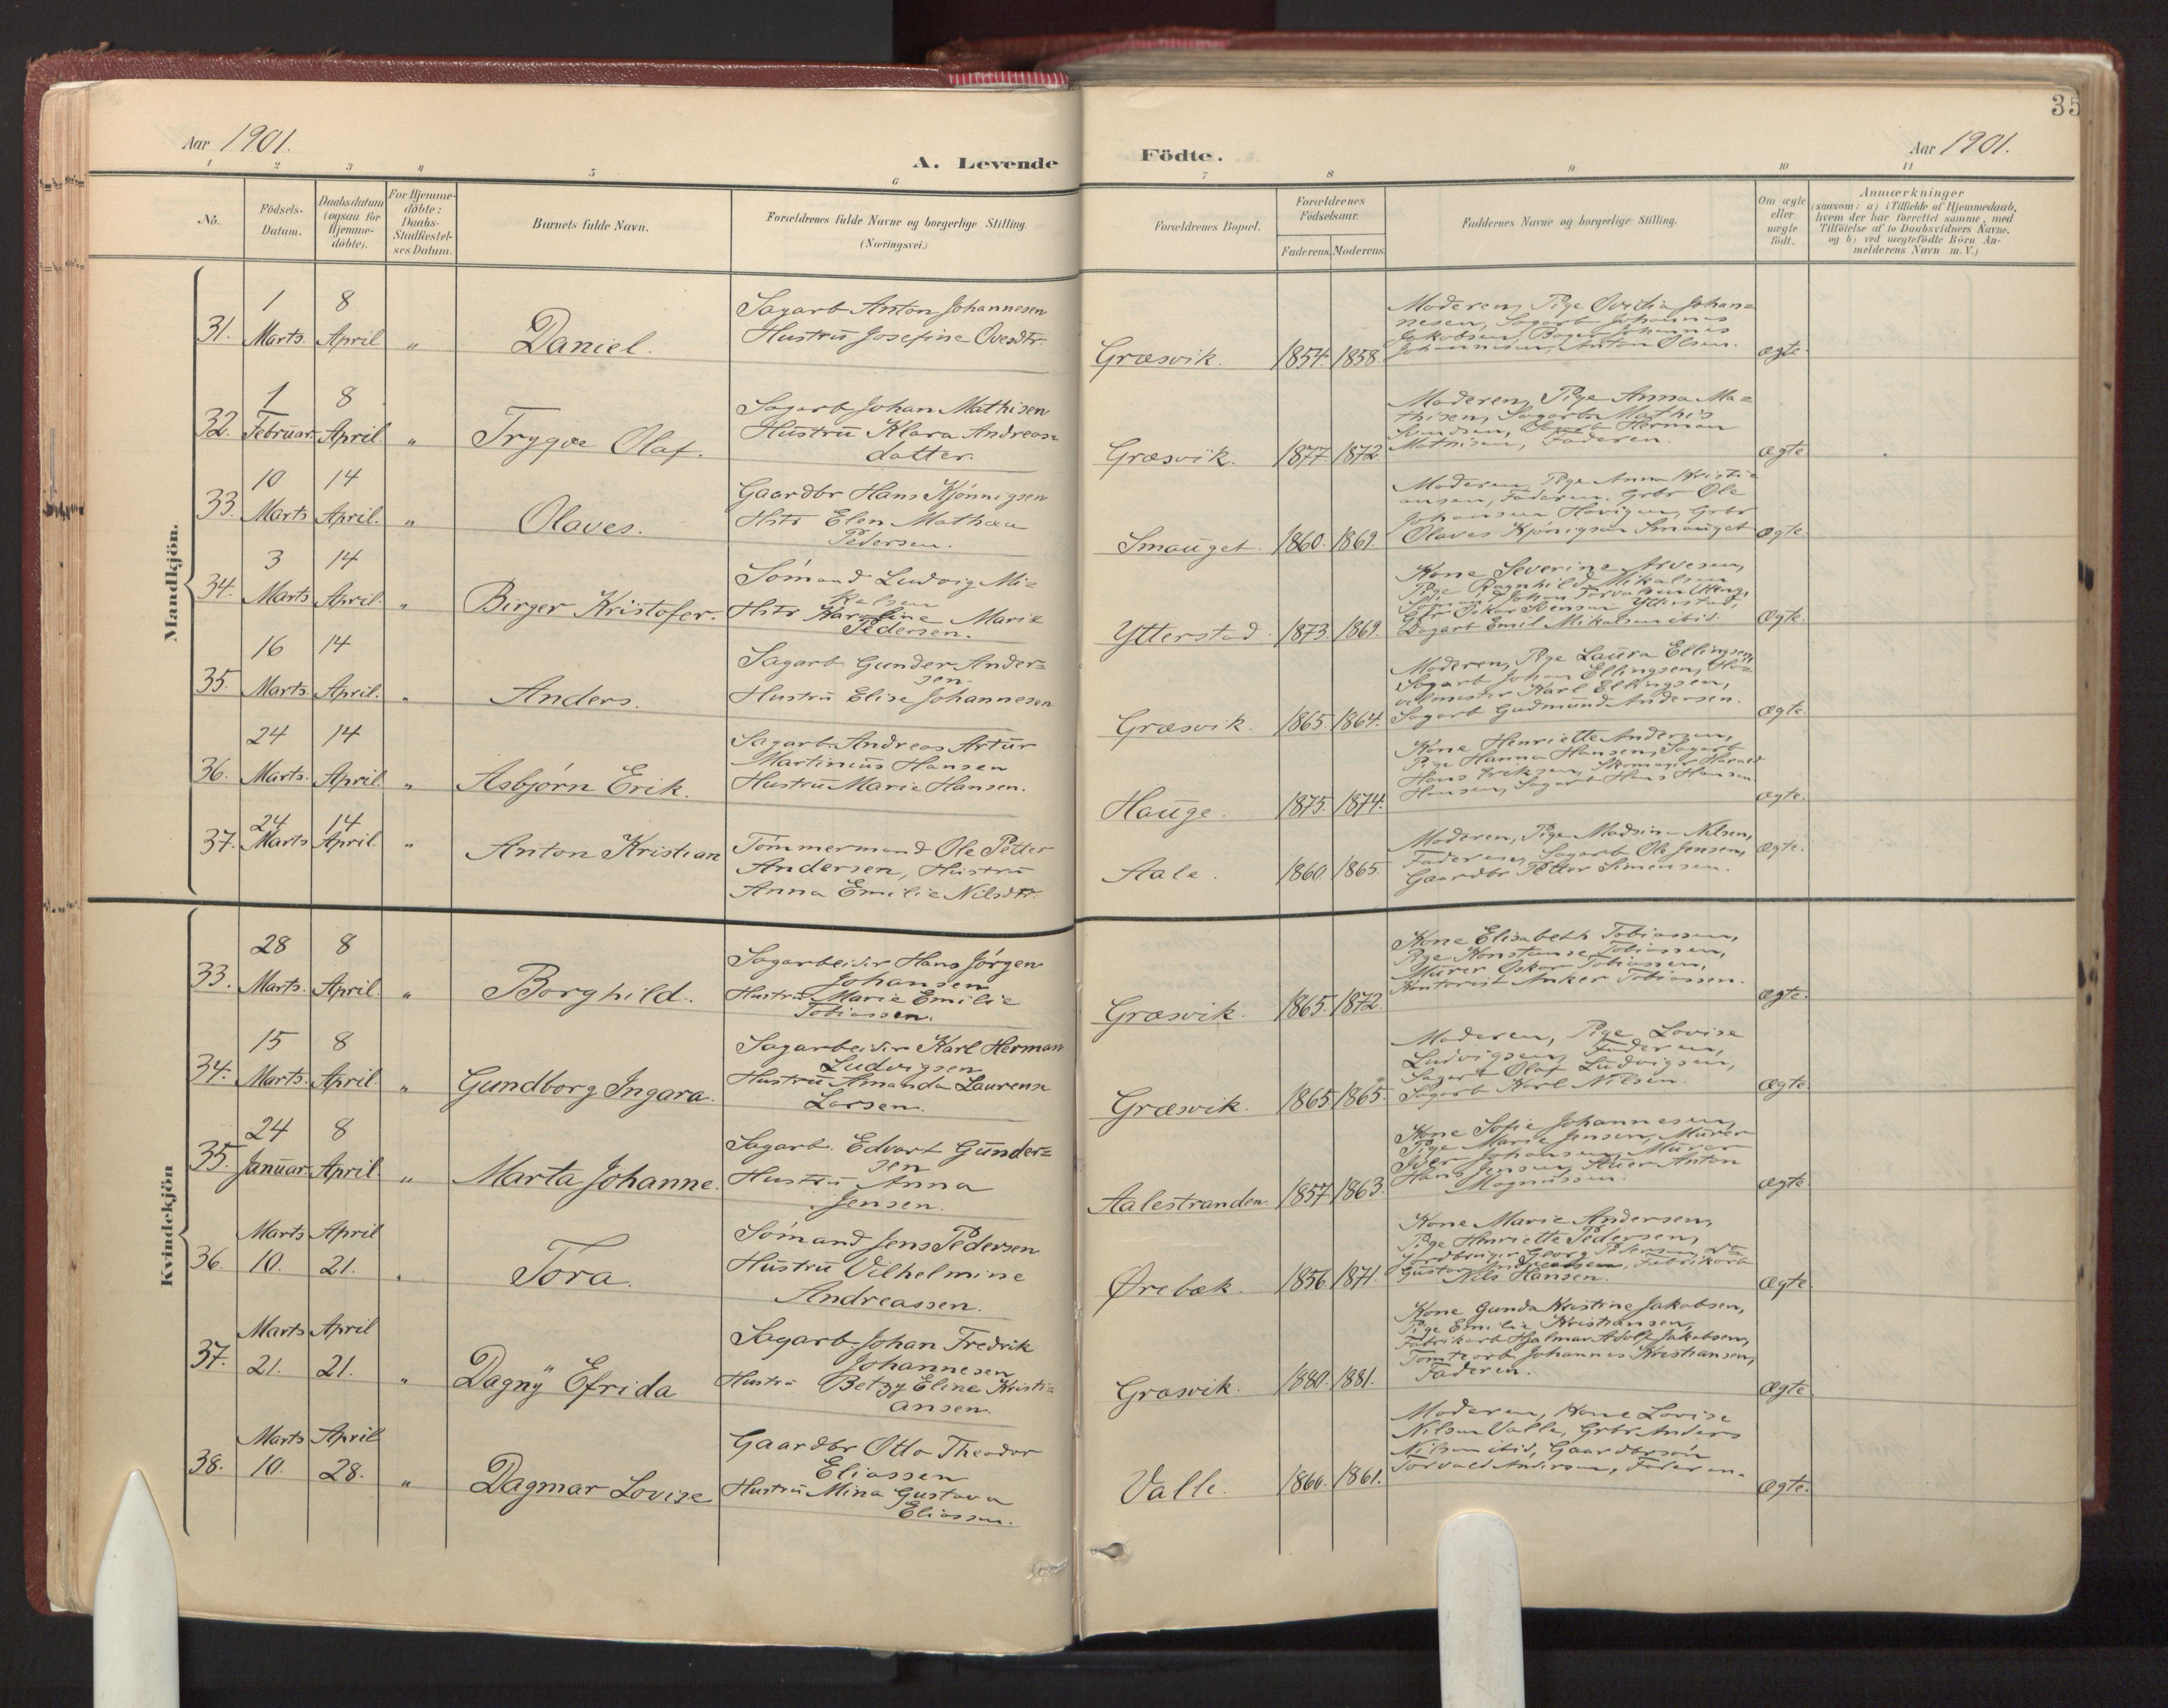 35
Aar 1901.
A. Levende Födte.
Aar 1901.
1 2 3 4 5 6 7 8 9 10 11
No.
Födsels-Datum.
Daabsdatum (ogsaa for Hjemme-döbte).
For Hjemme-döbte: Daabs-Stadfæstel-ses Datum.
Barnets fulde Navn.
Forældrenes fulde Navne og borgerlige Stilling.
(Næringsvei.)
Forældrenes Bopæl.
Forældrenes Födselsaar.
Faderens. Moderens.
Faddernes Navne og borgerlige Stilling.
Om ægte eller uægte födt.
Anmærkninger
(saasom: a) i Tilfælde af Hjemmedaab, hvem der har forrettet samme, med Tilföielse af to Daabsvidners Navne, og b) ved uægtefödte Börn An-melderens Navn m. V.)
Mandkjön.
31. 1 Marts. 8 April " Daniel.
Sagarb Anton Johannesen
Hustru Josefine Ovesdtr.
Græsvik. 1854. 1858.
Moderen, Pige Ovidia Johan=
nesen, Sagarb Johannes
Jakobsen, Bager Johannes
Johannesen, Anton Olsen.
ægte.
32. 1 Februar. 8 April. " Trygve Olaf.
Sagarb Johan Mathisen
Hustru Klara Andreas=
datter.
Græsvik. 1877. 1872.
Moderen, Pige Anna Ma=
thisen, Sagarb Mathis
Svendsen, Sagarb Herman
Mathisen, Faderen.
ægte
33. 10 Marts 14 April. " Olaves.
Gaardbr Hans Kjønnigsen
Hstr Elen Mathea
Pedersen.
Smauget. 1860. 1869
Moderen, Pige Anna Kristi=
ansen, Faderen, Grbr Ole
Johansen Havigen, Grbr
Olaves Kjönigsen Smauget
ægte.
34. 3 Marts 14 April. " Birger Kristofer.
Sömand Ludvig Mi=
kalsen
Hstr Karoline Marie
Pedersen.
Ytterstad. 1873. 1869.
Kone Severine Arvesen,
Pige Ragnhild Mikalsen
Sömand Johan Torvalsen
Gbr Oskar Svensen Ytterstad,
Dagarb Emil Mikalsen ibid.
Ægte.
35. 16 Marts 14 April. " Anders.
Sagarb Gunder Ander=
sen.
Hustru Elise Johannesen
Græsvik. 1865. 1864.
Moderen, Pige Laura Ellingsen,
Sagarb Johan Ellingsen, Hö=
velmester Karl Ellingsen,
Sagarb Gudmund Andersen.
ægte.
36. 24 Marts. 14 April. " Asbjørn Erik.
Sagarb. Andreas Artur
Martinius Hansen
Hustru Marie Hansen.
Hauge. 1875. 1874.
Kone Henriette Andersen,
Pige Hanna Hansen, Sagarb
Hans Eriksen, Skomager Harald
Hansen, Sagarb Hans Hansen
ægte.
37. 24 Marts 14 April. " Anton Kristian
Tömmermand Ole Petter
Andersen, Hustru
Anna Emilie Nilsdtr.
Aale. 1860 1865.
Moderen, Pige Madsine Nilsen,
Faderen, Sagarb Ole Jensen,
Gaardbr Petter Simensen.
ægte.
Kvindekjön
33. 28 Marts. 8 April. " Borghild.
Sagarbeider Hans Jörgen
Johansen
Hustru Marie Emilie
Tobiassen.
Græsvik. 1865. 1872.
Kone Elisabeth Tobiassen,
Pige Konstanse Tobiassen,
Murer Oskar Tobiassen,
Kontorist Anker Tobiassen.
ægte.
34. 15 Marts. 8 April. " Gundborg Ingara.
Sagarbeider Karl Herman
Ludvigsen
Hustru Amanda Laurense
Larsen.
Græsvik. 1865 1865.
Moderen, Pige Lovise
Ludvigsen, Faderen,
Sagarb Olaf Ludvigsen,
Sagarb Karl Nilsen.
Ægte.
35. 24 Januar. 8 April " Marta Johanne.
Sagarb. Edvart Gunder=
sen
Hustru Anna
Jensen.
Aalestranden. 1857. 1863.
Kone Sofie Johannesen,
Pige Marie Jensen, Murer
Iver Johansen, Murer
Hans Jensen, Stuer Anton
Magnussen.
ægte
36. Marts 10. April 21. " Tora.
Sömand Jens Pedersen
Hustru Vilhelmine
Andreassen.
Ørebæk. 1856. 1871.
Kone Marie Andersen,
Pige Henriette Pedersen,
Jordbruger Georg Petersen,
Gustav Andreassen, Fabrikarb
Nils Hansen.
Ægte
37. Marts 21. April 21. " Dagny Efrida
Sagarb. Johan Fredrik
Johannesen
Hustru Betzy Eline Kristi=
ansen.
Græsvik. 1880. 1881.
Kone Gunda Kristine Jakobsen,
Pige Emilie Kristiansen,
Fabrikarb Hjalmar Adolf Jakobsen,
Tomtearb Johannes Kristiansen,
Faderen.
Ægte
38. Marts 10. April 28. " Dagmar Lovise
Gaardbr Otto Theodor
Eliassen
Hustru Mina Gustava
Eliassen.
Valle. 1860. 1861.
Moderen, Kone Lovise
Nilsen Valle, Grbr Anders
Nilsen ibid, Gaardbrsön
Torvald Andersen, Faderen.
ægte.